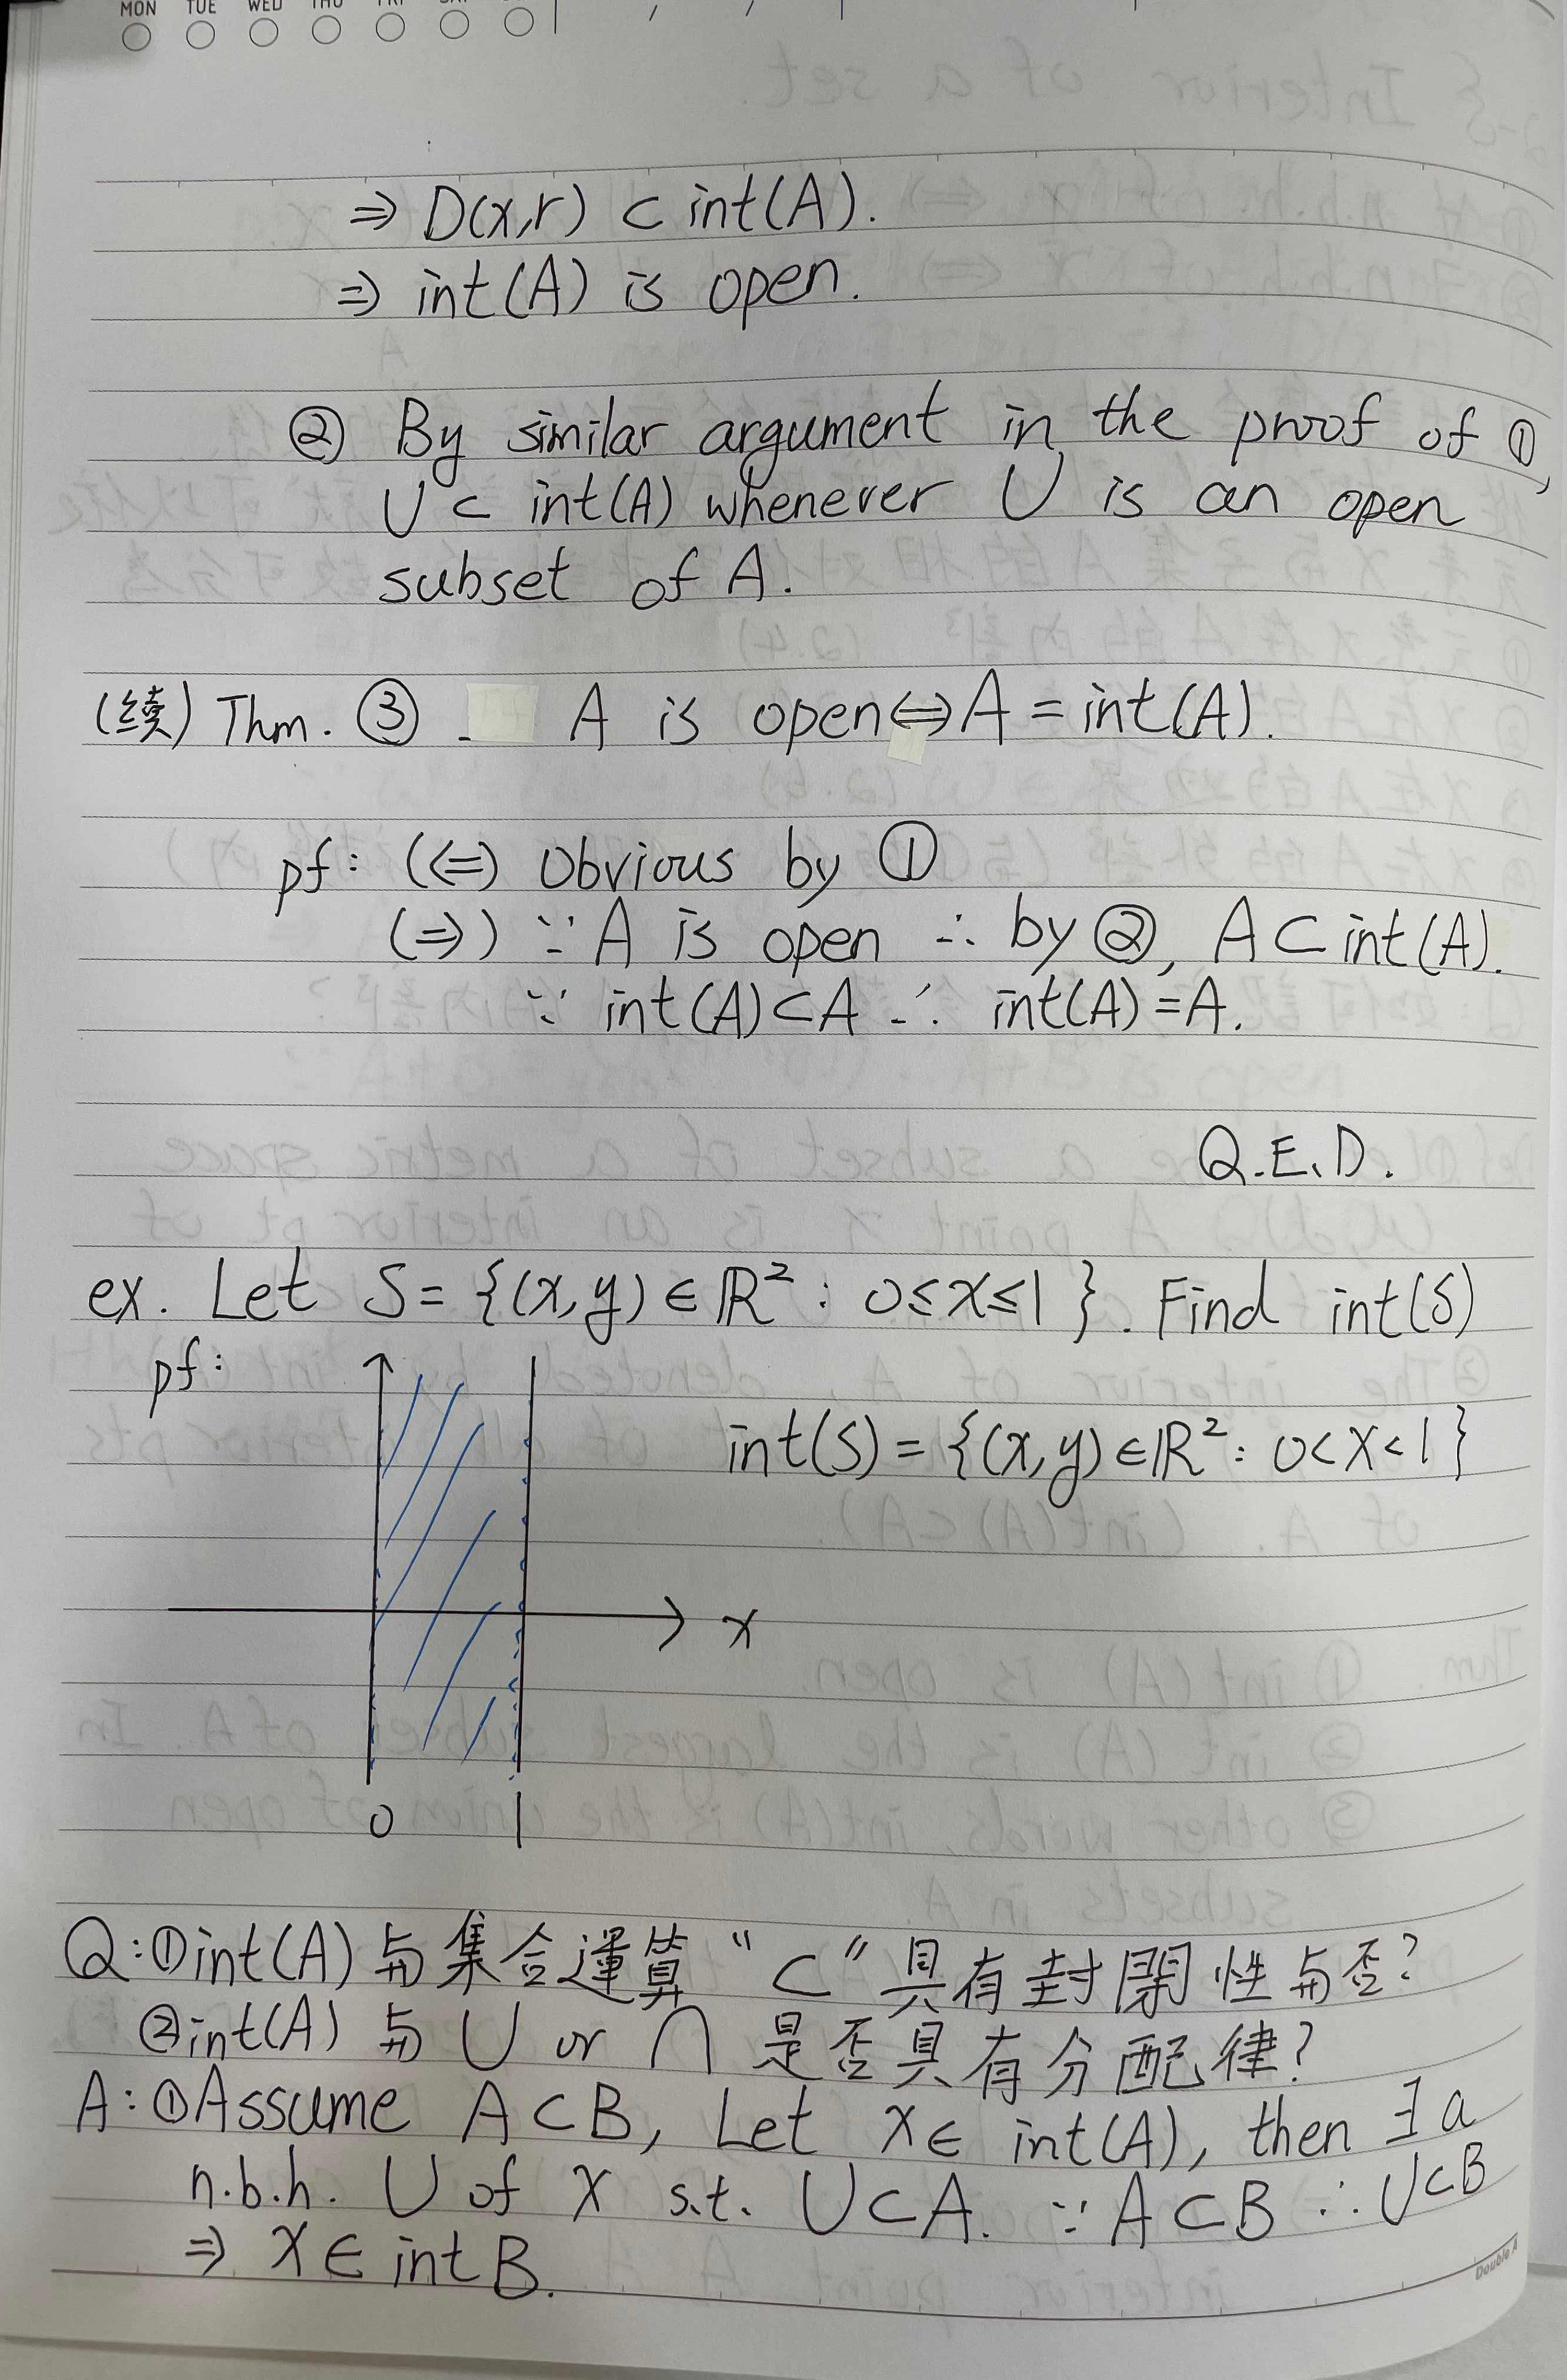 MON TUE WED THU FRI SAT
⇒ D(x,r) ⊂ int(A).
⇒ int(A) is open.
② By similar argument in the proof of ①,
U ⊂ int(A) whenever U is an open
subset of A.
(续) Thm. ③. A is open ⇔ A = int(A).
pf: (⇐) Obvious by ①
(⇒) ∵ A is open ∴ by ②, A ⊂ int(A).
∵ int(A) ⊂ A ∴ int(A) = A.
Q.E.D.
ex. Let S = {(x,y) ∈ ℝ² : 0≤x≤1}. Find int(S)
pf:
int(S) = {(x,y) ∈ ℝ² : 0<x<1}
x
0 1
Q: ①int(A) 与集合運算 "⊂" 具有封閉性与否?
②int(A) 与 ∪ or ∩ 是否具有分配律?
A: ①Assume A⊂B, Let x∈ int(A), then ∃ a
n.b.h. U of x s.t. U⊂A. ∵ A⊂B ∴ U⊂B
⇒ x ∈ int B.
Double A